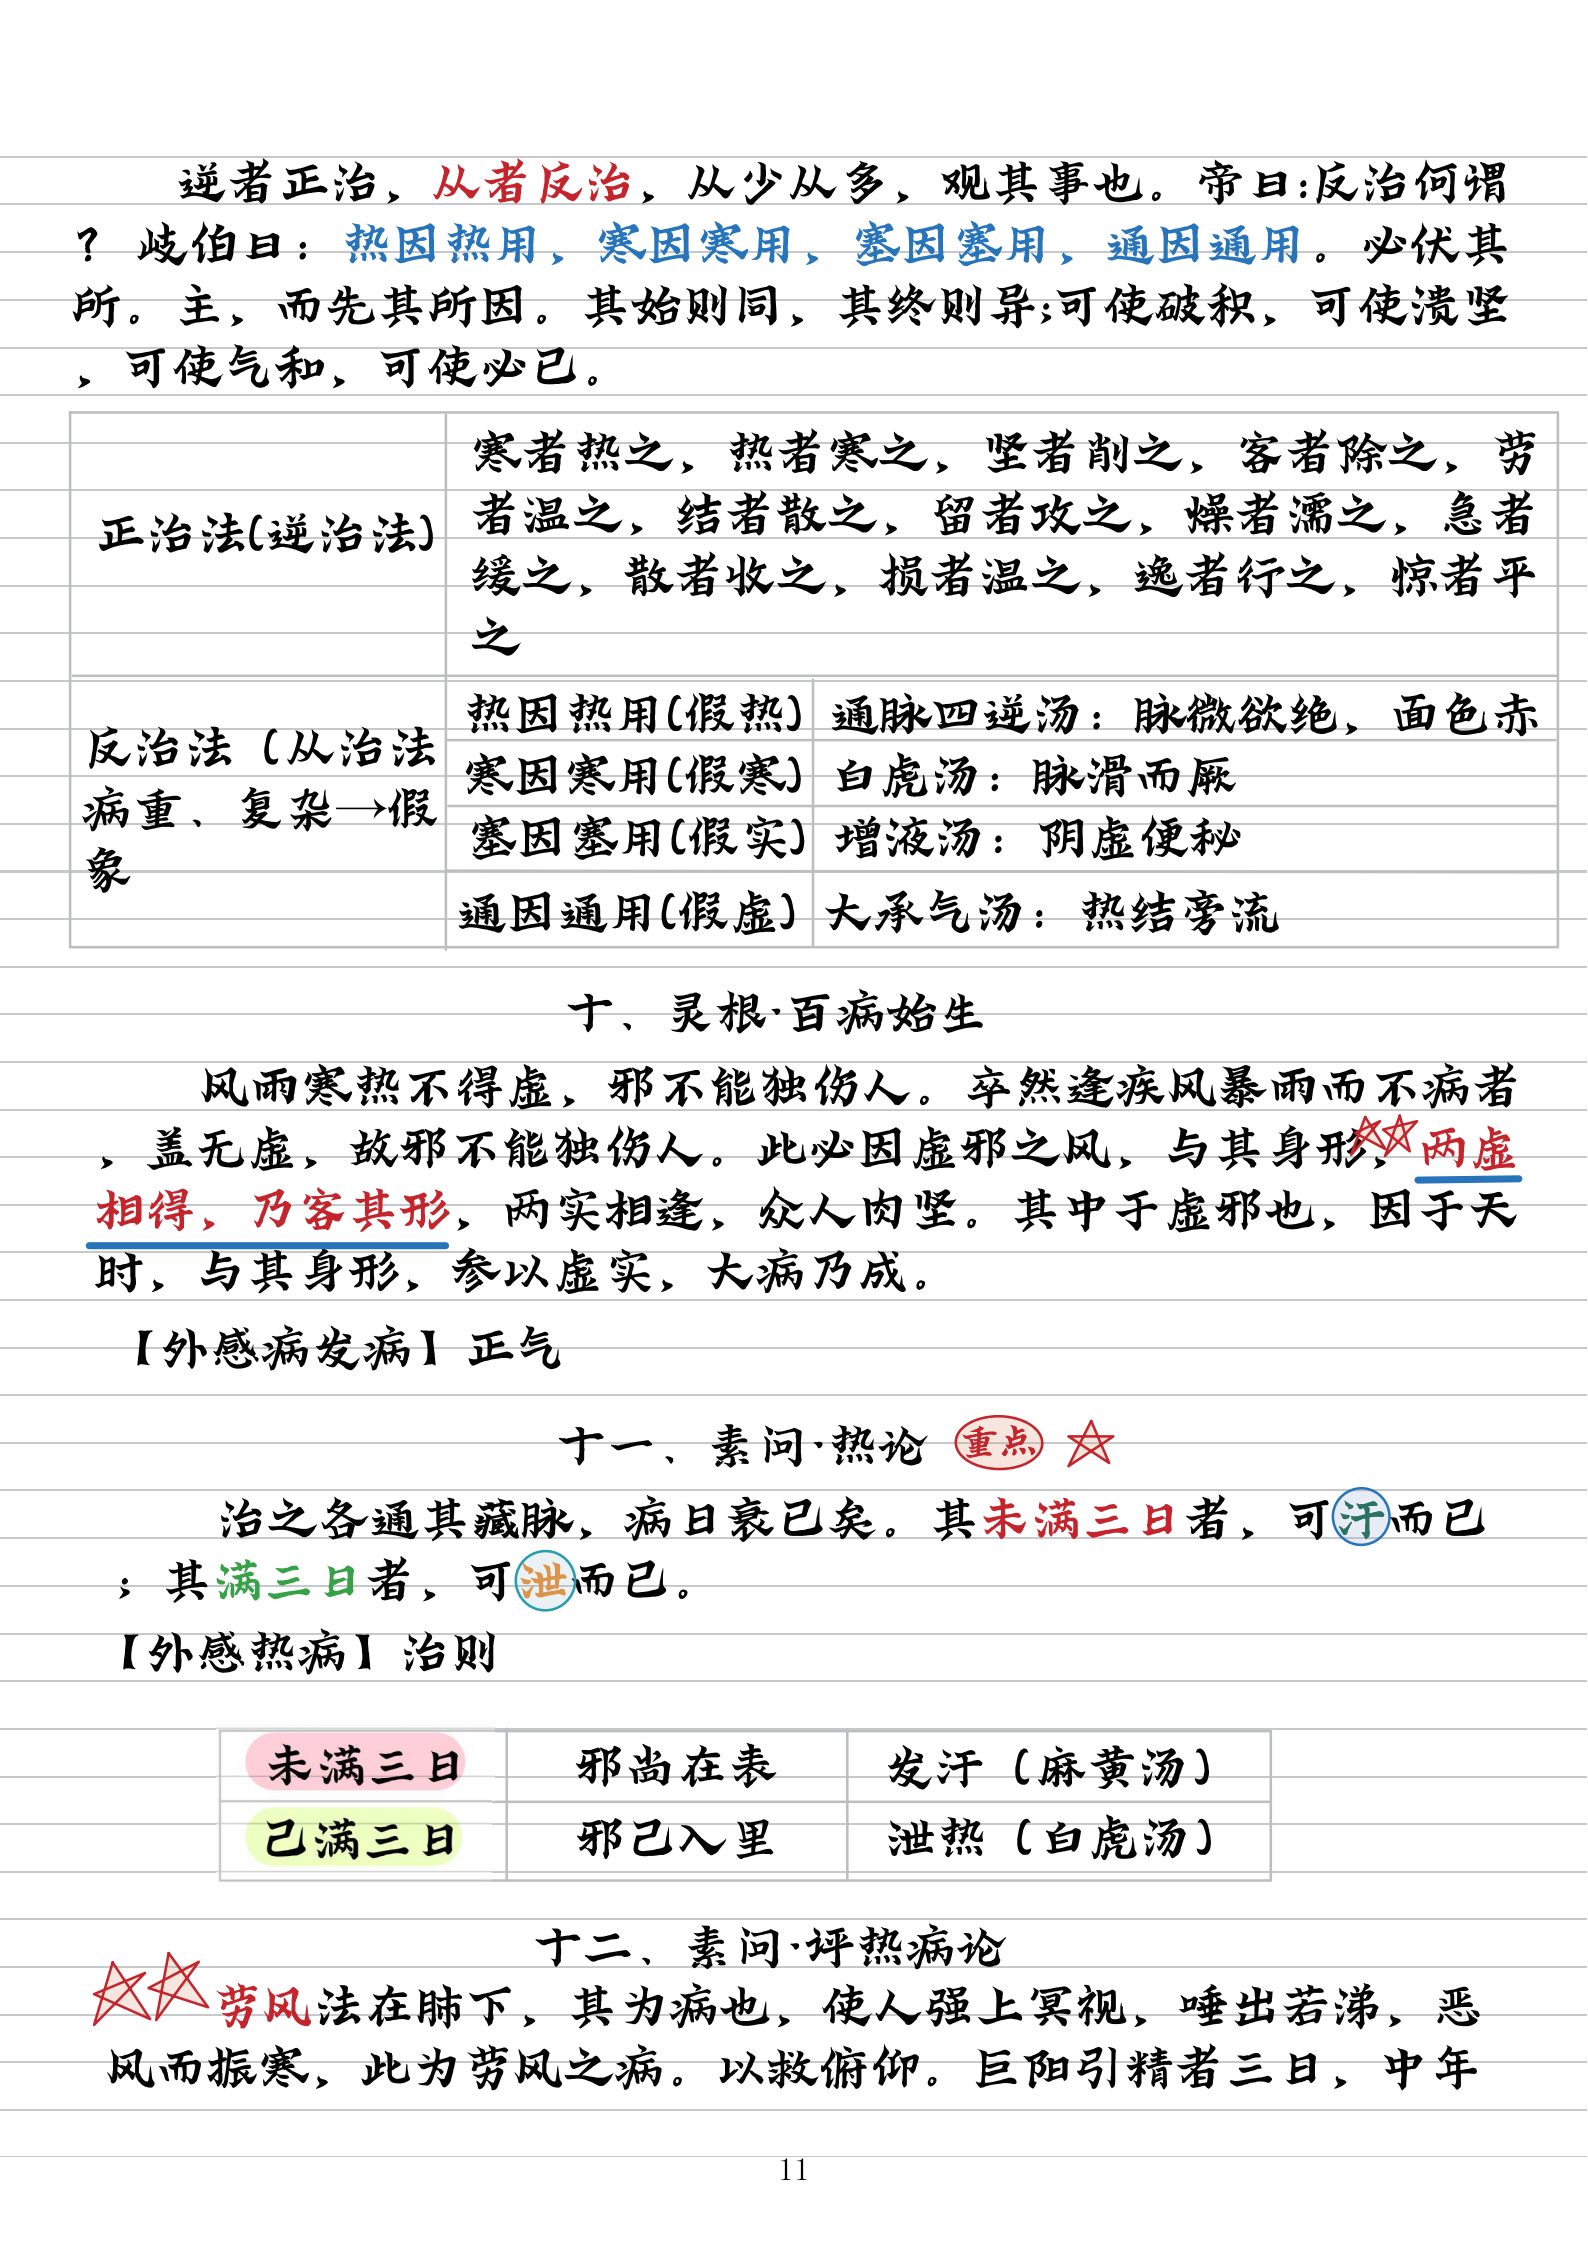 逆者正治，从者反治，从少从多，观其事也。帝曰:反治何谓
？ 岐伯曰：热因热用，寒因寒用，塞因塞用，通因通用。必伏其
所。主，而先其所因。其始则同，其终则异;可使破积，可使溃坚
，可使气和，可使必已。
正治法(逆治法)
寒者热之，热者寒之，坚者削之，客者除之，劳
者温之，结者散之，留者攻之，燥者濡之，急者
缓之，散者收之，损者温之，逸者行之，惊者平
之
反治法（从治法
病重、复杂→假
象
热因热用(假热) 通脉四逆汤：脉微欲绝，面色赤
寒因寒用(假寒) 白虎汤：脉滑而厥
塞因塞用(假实) 增液汤：阴虚便秘
通因通用(假虚) 大承气汤：热结旁流
十、灵根·百病始生
风雨寒热不得虚，邪不能独伤人。卒然逢疾风暴雨而不病者
，盖无虚，故邪不能独伤人。此必因虚邪之风，与其身形，两虚
相得，乃客其形，两实相逢，众人肉坚。其中于虚邪也，因于天
时，与其身形，参以虚实，大病乃成。
【外感病发病】正气
十一、素问·热论 重点
治之各通其藏脉，病日衰已矣。其未满三日者，可汗而已
；其满三日者，可泄而已。
【外感热病】治则
未满三日 邪尚在表 发汗（麻黄汤）
已满三日 邪已入里 泄热（白虎汤）
十二、素问·评热病论
劳风法在肺下，其为病也，使人强上冥视，唾出若涕，恶
风而振寒，此为劳风之病。以救俯仰。巨阳引精者三日，中年
11